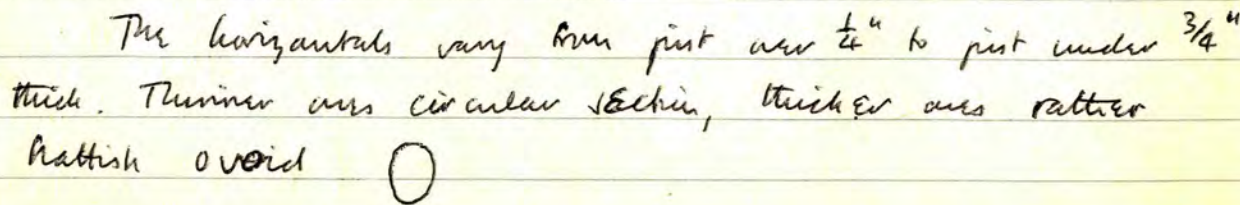 The horizontals vary from just over 1/4" to just under 3/4"
thick. Thinner ones circular section, thicker ones rather
flattish ovoid